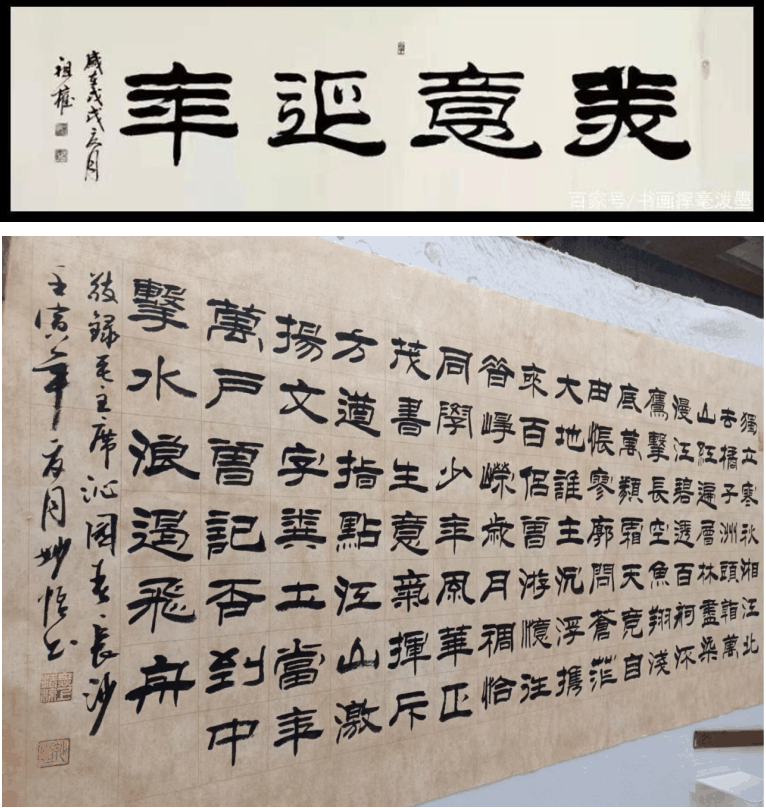 美意延年
歲在戊戌
祖權
百家号/书画挥毫泼墨
獨立寒秋湘江北
去橘子洲頭看萬
山紅遍層林盡染
漫江碧透百舸
鷹擊長空魚翔淺
底萬類霜天競自
由悵寥廓問蒼茫
大地誰主沉浮攜
來百侶曾游憶往
昔崢嶸歲月稠恰
同學少年風華正
茂書生意氣揮斥
方遒指點江山激
揚文字糞土當年
萬戶曾記否到中
擊水浪遏飛舟
敬錄毛主席沁園春長沙
壬寅年夏月妙悟書